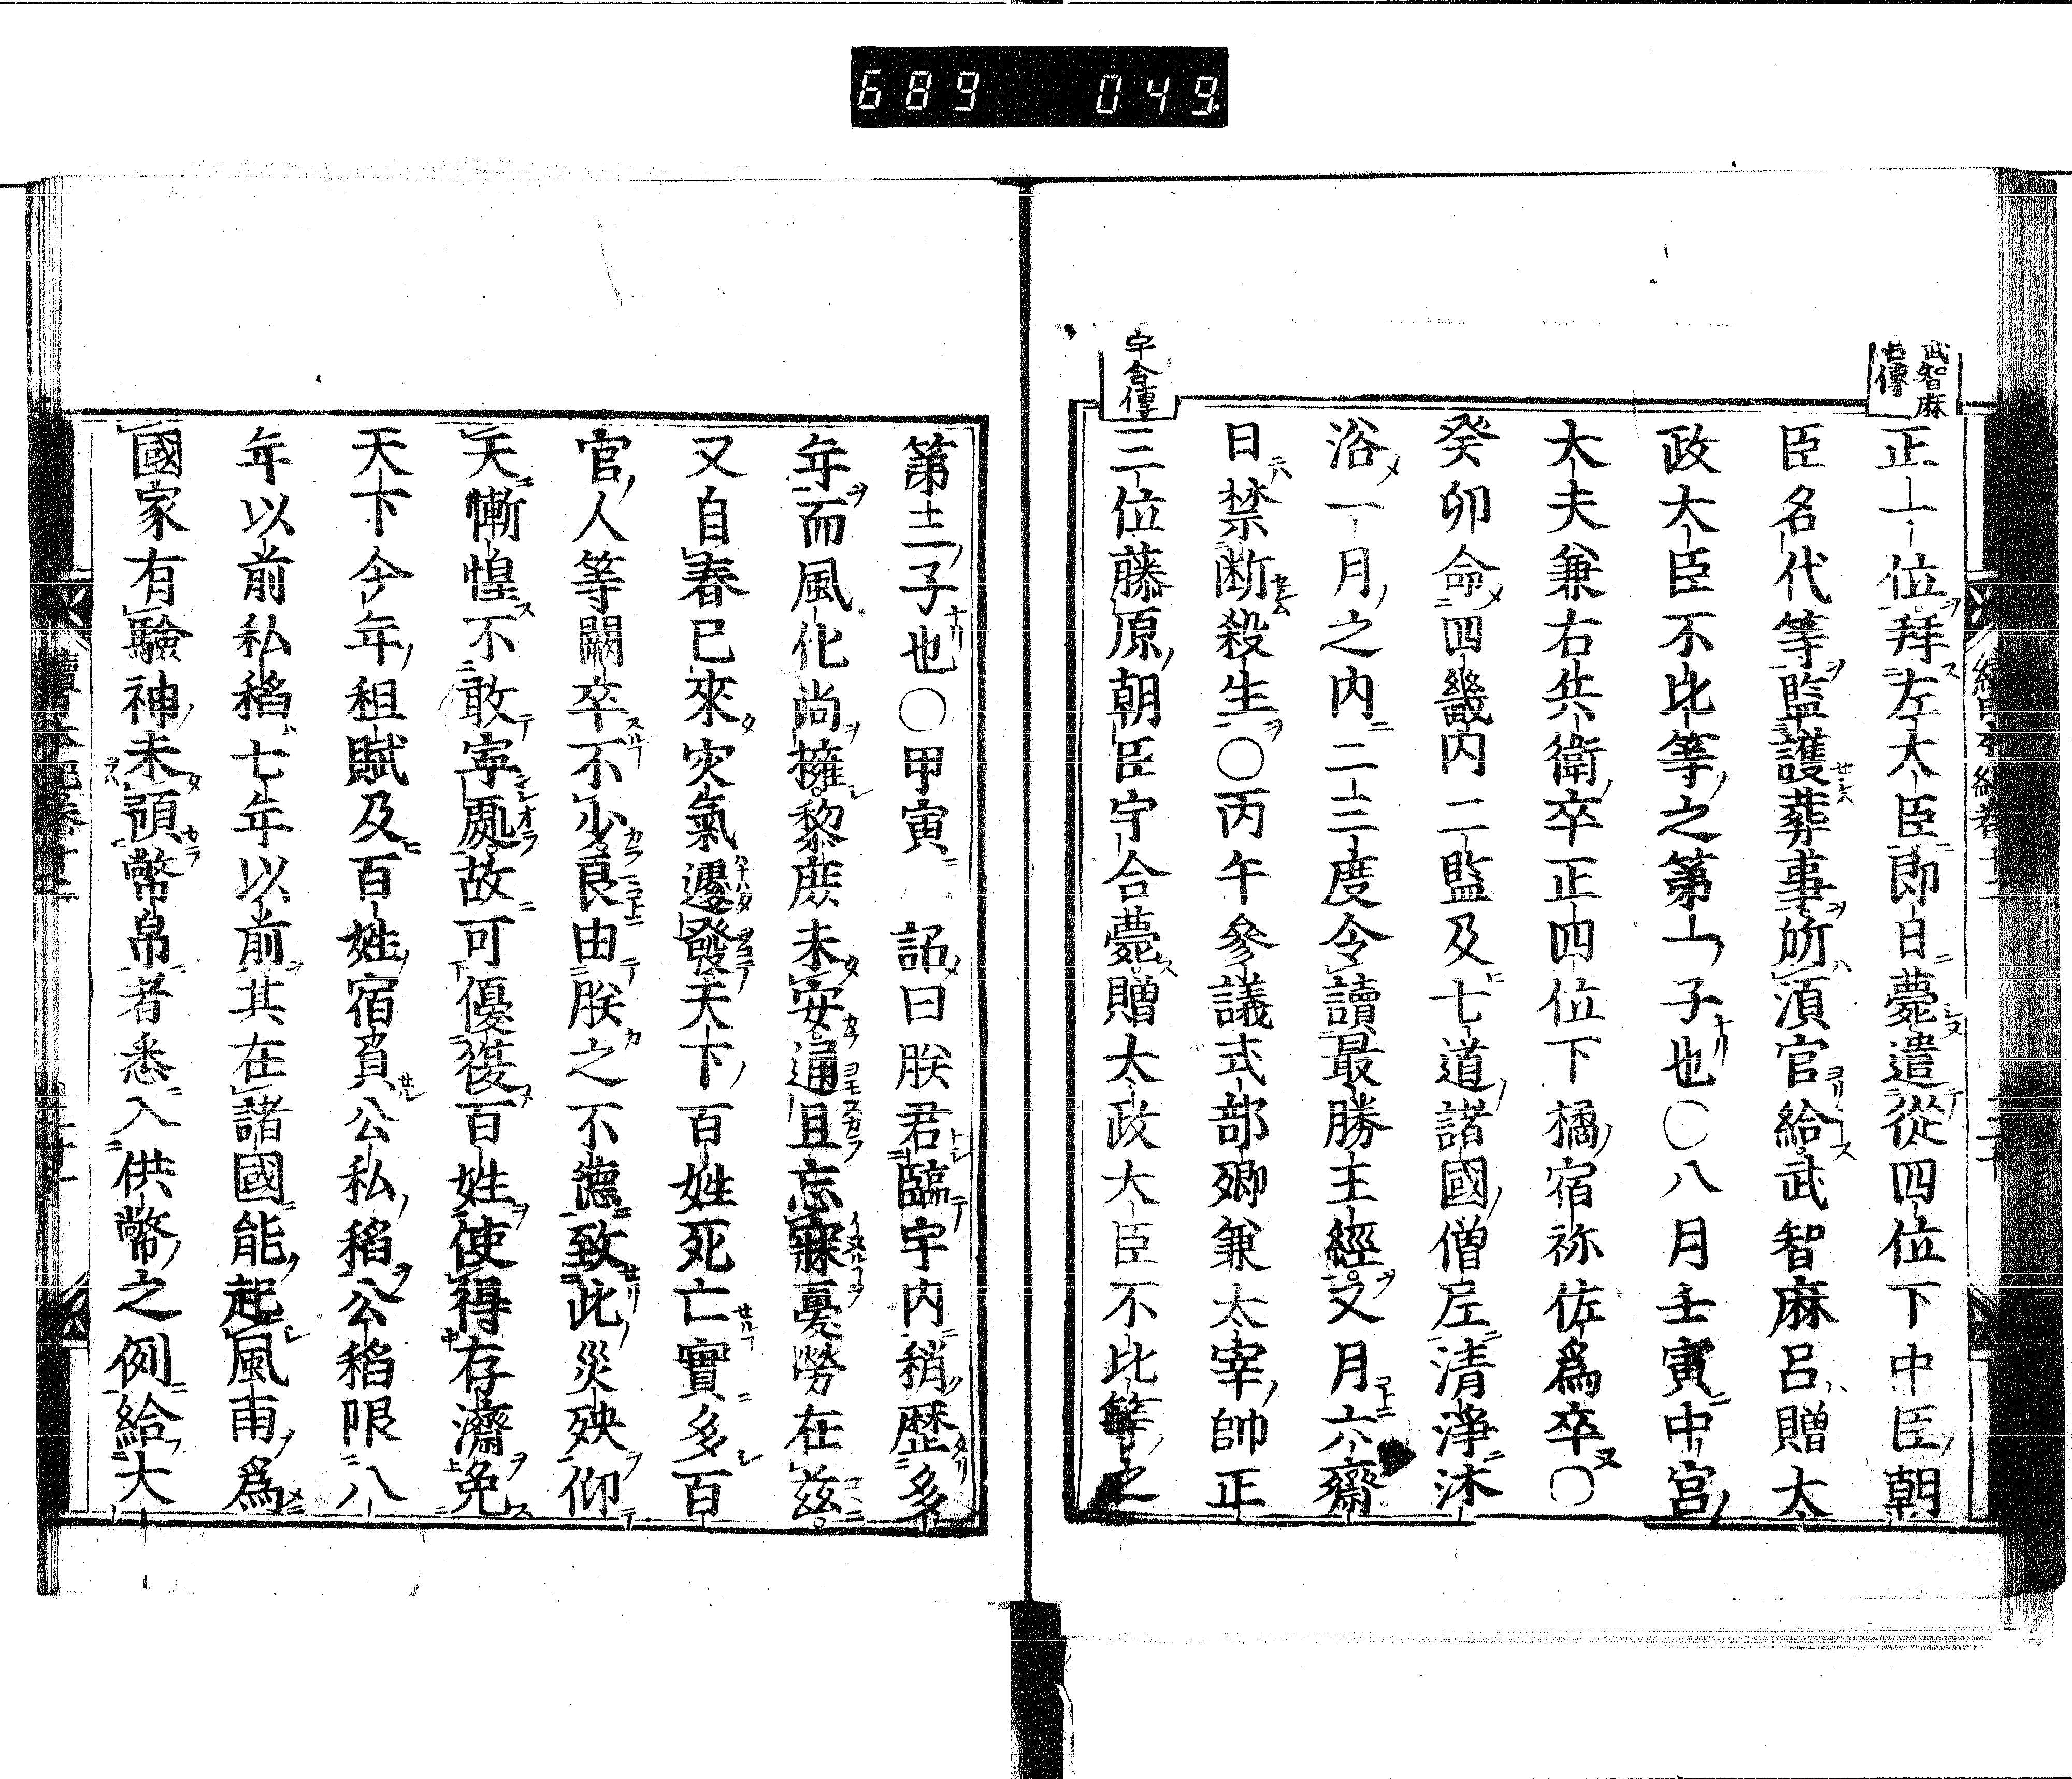 689 049.
武智麻
呂傳
正一位拜左大臣即日薨遣從四位下中臣朝
臣名代等監護葬事所須官給武智麻呂贈太
政大臣不比等之第一子也○八月壬寅中宮
大夫兼右兵衛卒正四位下橘宿祢佐爲卒○
癸卯命四畿内二監及七道諸國僧尼清淨沐
浴一月之内二三度令讀最勝王經又月六齋
日禁断殺生○丙午參議式部卿兼太宰帥正
宇合傳
三位藤原朝臣宇合薨贈太政大臣不比等之
第三子也○甲寅 詔曰朕君臨宇内稍歷多
年而風化尚擁黎庶未安通旦忘寐憂勞在茲
又自春已來灾氣遽發天下百姓死亡實多百
官人等闕卒不少良由朕之不德致此災殃仰
天慚惶不敢寧處故可優復百姓使得存濟免
天下今年租賦及百姓宿負公私稻公稻限八
年以前私稻七年以前其在諸國能起風雨爲
國家有驗神未預幣帛者悉入供幣之例給大